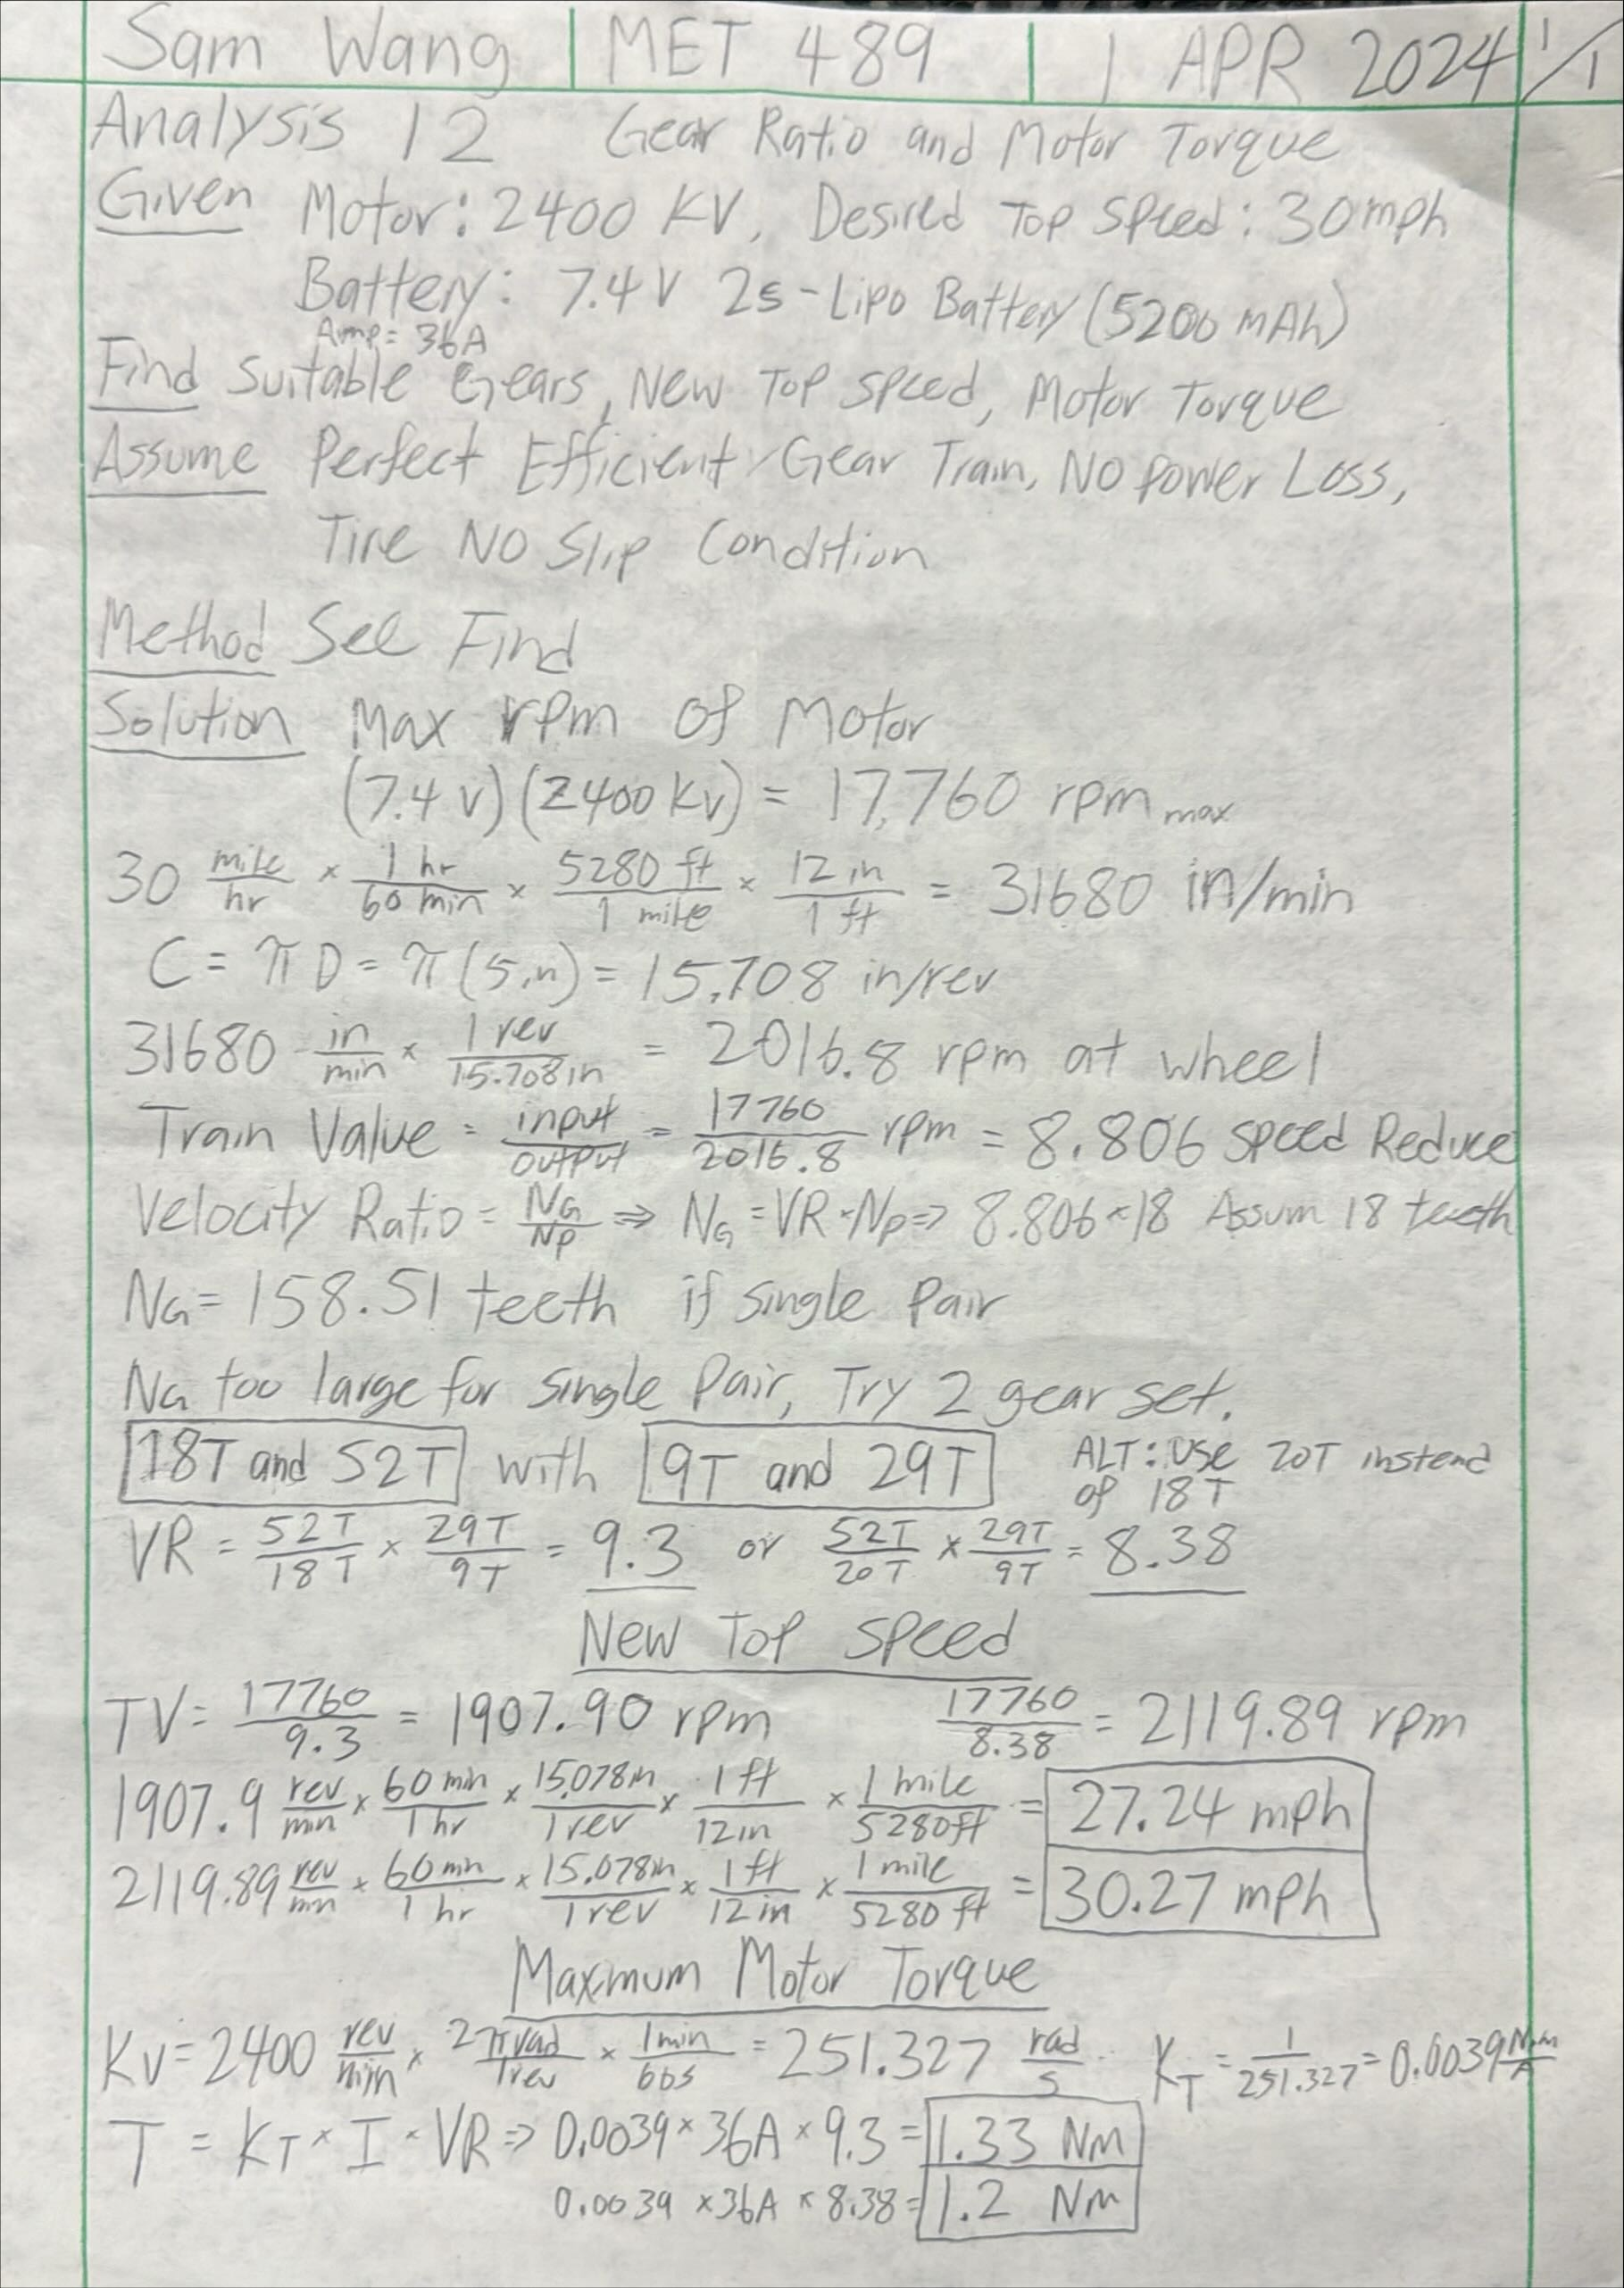 Sam Wang | MET 489 | 1 APR 2024 1/1
Analysis 12 Gear Ratio and Motor Torque
Given Motor: 2400 KV, Desired Top Speed: 30mph
Battery: 7.4V 2s-Lipo Battery (5200 mAh)
Amp = 36A
Find Suitable Gears, New Top Speed, Motor Torque
Assume Perfect Efficient Gear Train, No Power Loss,
Tire No Slip Condition
Method See Find
Solution Max rpm of Motor
(7.4 V)(2400 KV) = 17,760 rpm max
30 mile/hr × 1 hr/60 min × 5280 ft/1 mile × 12 in/1 ft = 31680 in/min
C = πD = π(5in) = 15.708 in/rev
31680 in/min × 1 rev/15.708in = 2016.8 rpm at wheel
Train Value = input/output = 17760/2016.8 rpm = 8.806 Speed Reduce
Velocity Ratio = NG/NP ⇒ NG = VR·NP ⇒ 8.806×18 Assum 18 teeth
NG = 158.51 teeth if single Pair
NG too large for single Pair, Try 2 gear set.
18T and 52T with 9T and 29T ALT: Use 20T instead
of 18T
VR = 52T/18T × 29T/9T = 9.3 or 52T/20T × 29T/9T = 8.38
New Top Speed
TV = 17760/9.3 = 1907.90 rpm 17760/8.38 = 2119.89 rpm
1907.9 rev/min × 60 min/1 hr × 15.078in/1 rev × 1 ft/12in × 1 mile/5280ft = 27.24 mph
2119.89 rev/min × 60 min/1 hr × 15.078in/1 rev × 1 ft/12 in × 1 mile/5280 ft = 30.27 mph
Maximum Motor Torque
KV = 2400 rev/min × 2π rad/1rev × 1min/60s = 251.327 rad/s KT = 1/251.327 = 0.0039 N·m/A
T = KT × I · VR ⇒ 0.0039 × 36A × 9.3 = 1.33 Nm
0.0039 × 36A × 8.38 = 1.2 Nm